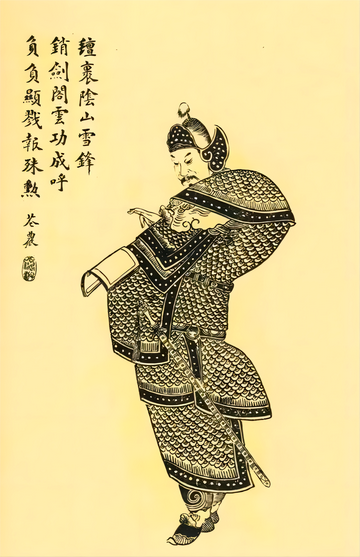 氈裹陰山雪鋒
銷劍閣雲功成呼
負負顯戮報殊勲
苍農